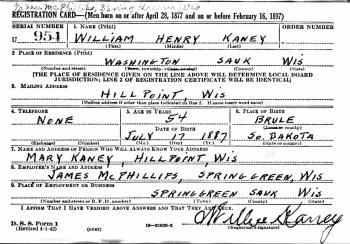 James McPhillips, Spring Green, Wis
REGISTRATION CARD—(Men born on or after April 28, 1877 and on or before February 16, 1897)
SERIAL NUMBER 1. NAME (Print) ORDER NUMBER
U 951 WILLIAM HENRY KANEY
(First) (Middle) (Last)
2. PLACE OF RESIDENCE (Print)
WASHINGTON SAUK WIS
[THE PLACE OF RESIDENCE GIVEN ON THE LINE ABOVE WILL DETERMINE LOCAL BOARD
JURISDICTION; LINE 2 OF REGISTRATION CERTIFICATE WILL BE IDENTICAL]
3. MAILING ADDRESS
HILLPOINT, WIS
[Mailing address if other than place indicated on line 2. If same insert word same]
4. TELEPHONE 5. AGE IN YEARS 6. PLACE OF BIRTH
NONE 54 BRULE
DATE OF BIRTH (Town or county)
JULY 17 1887 SO. DAKOTA
(Exchange) (No.) (Mo.) (Day) (Yr.) (State or country)
7. NAME AND ADDRESS OF PERSON WHO WILL ALWAYS KNOW YOUR ADDRESS
MARY KANEY, HILLPOINT, WIS
8. EMPLOYER'S NAME AND ADDRESS
JAMES MCPHILLIPS, SPRING GREEN, WIS
9. PLACE OF EMPLOYMENT OR BUSINESS
SPRING GREEN SAUK WIS
(Number and street or R. F. D. number) (Town) (County) (State)
I AFFIRM THAT I HAVE VERIFIED ABOVE ANSWERS AND THAT THEY ARE TRUE.
D. S. S. Form 1
(Revised 4-1-42) (over) 16—21630-2